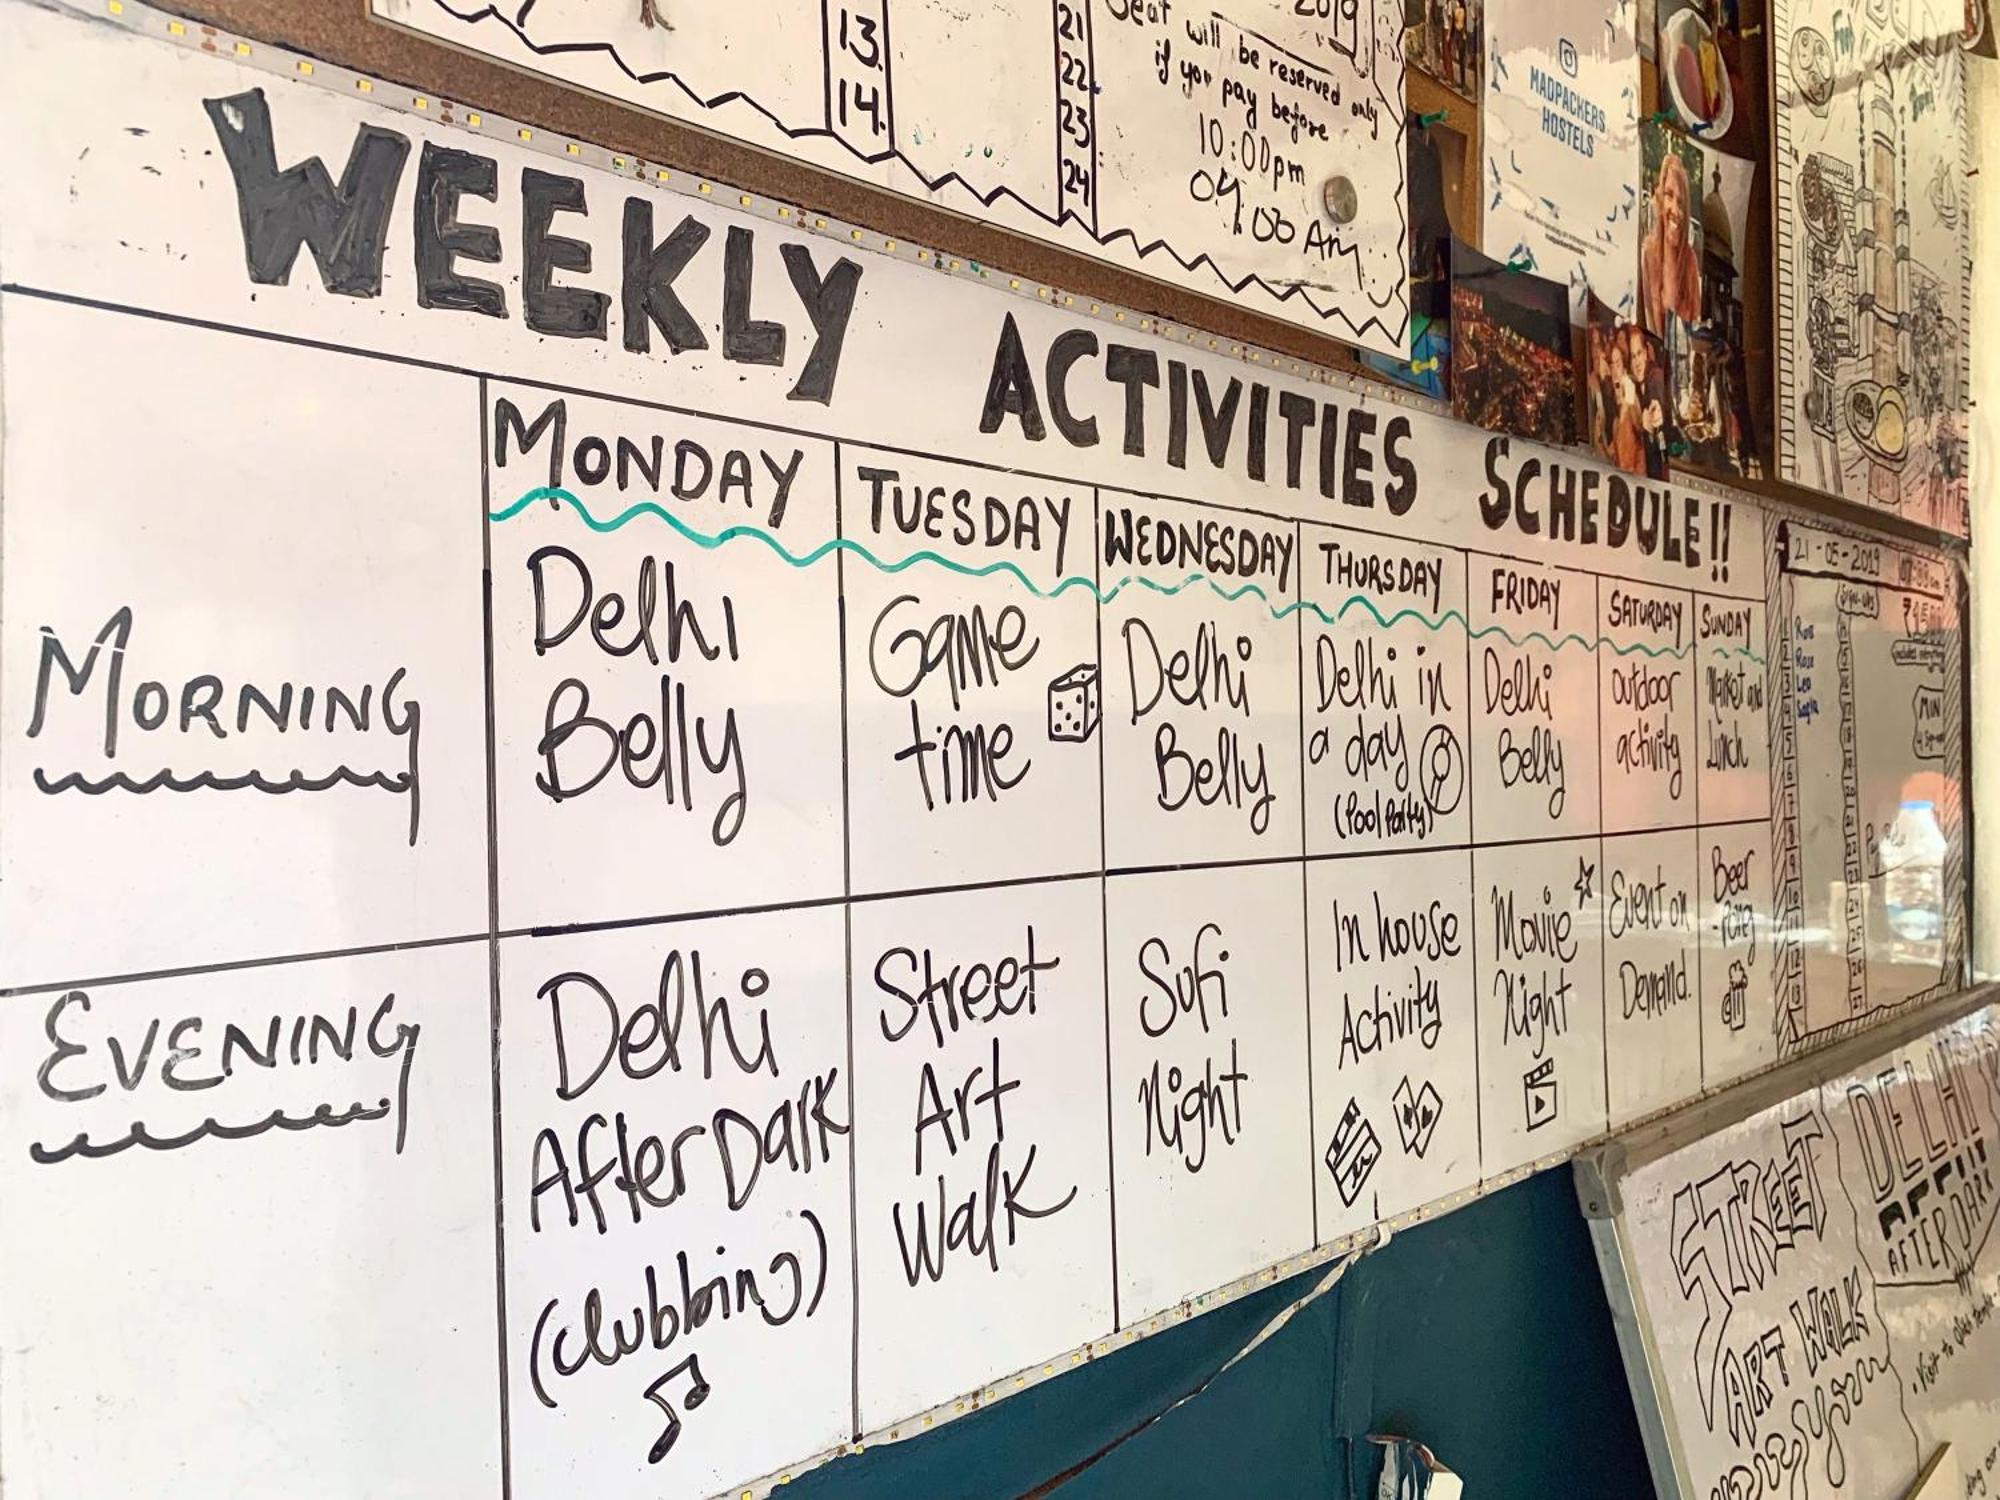 13.
14.
21
22.
23
24
2019
Seat will be reserved only
if you pay before
10:00pm
MADPACKERS
HOSTELS
WEEKLY ACTIVITIES SCHEDULE!!
MONDAY TUESDAY WEDNESDAY THURSDAY FRIDAY SATURDAY SUNDAY
MORNING
Delhi
Belly
Game
time
Delhi
Belly
Delhi in
a day
(Pool Party)
Delhi
Belly
outdoor
activity
Market and
Lunch
EVENING
Delhi
After Dark
(clubbing)
Street
Art
Walk
Sufi
Night
In house
Activity
Movie
Night
Event on
Demand.
Beer
-Pong
21-05-2019
Sign-ups
included everything
Rose
Leo
MIN
STREET
ART WALK
DELHI
AFTER DARK